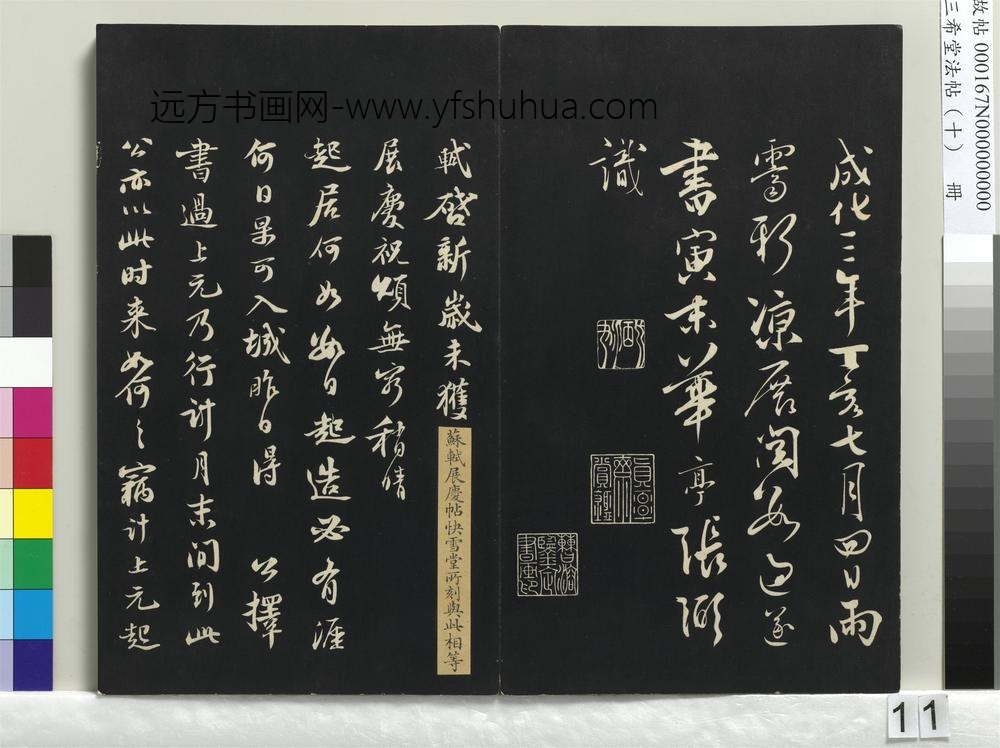 故帖 000167N000000000
三希堂法帖（十） 冊
远方书画网-www.yfshuhua.com
成化三年丁亥七月四日雨
霽新凉展閱數過遂
書寅末華亭張弼
識
軾啓新歲未獲
蘇軾展慶帖快雪堂所刻與此相等
展慶祝頌無窮稍晴
起居何如數日起造必有涯
何日果可入城昨日得 公擇
書過上元乃行計月末间到此
公亦以此时来如何〻竊計上元起
11